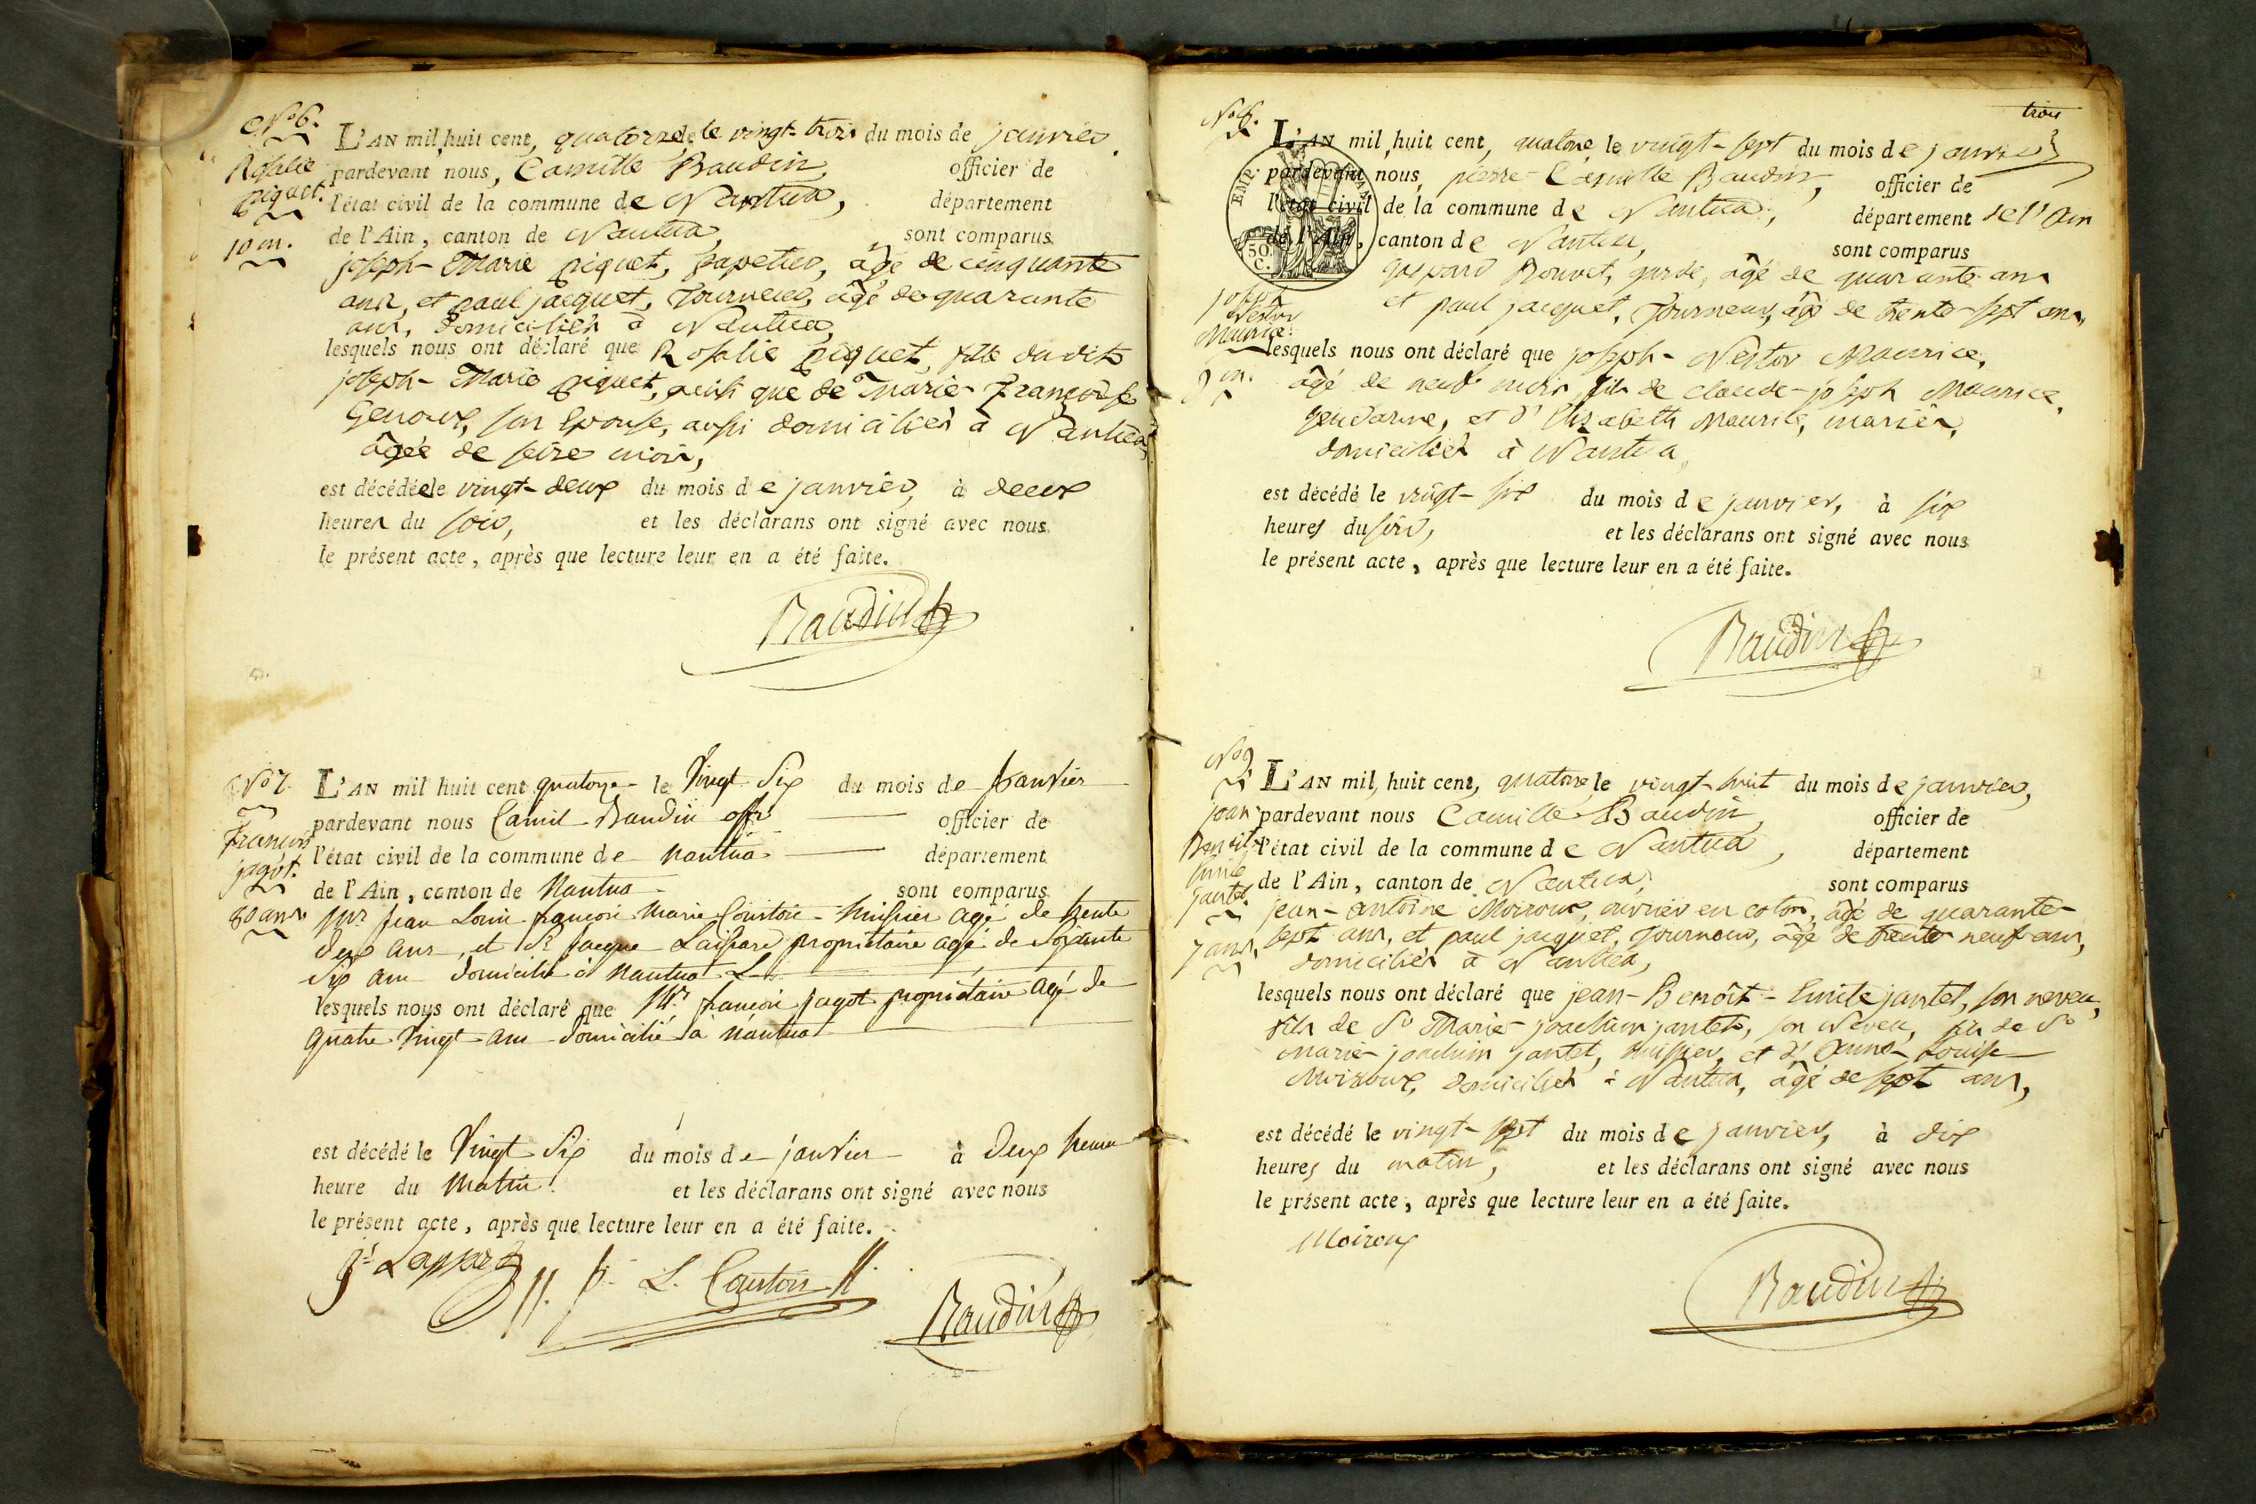 N.º 6.
Rosalie
piquet.
10 m.
L'AN mil, huit cent, quatorze, le vingt-trois du mois de janvier
pardevant nous, Camille Baudin, officier de
l'état civil de la commune de Nantua, département
de l'Ain, canton de Nantua, sont comparus
joseph-Marie piquet, papetier, âgé de cinquante
ans, et paul jacquet, Tourneur, âgé de quarante
ans, domiciliés à Nantua,
lesquels nous ont déclaré que Rosalie piquet, fille dudit
joseph-Marie piquet, ainsi que de Marie-Françoise
Genoux, son Epouse, aussi domiciliés à Nantua,
âgée de seize mois,
est décédée le vingt-deux du mois de janvier, à deux
heures du soir, et les déclarans ont signé avec nous
le présent acte, après que lecture leur en a été faite.
Baudin
N.º 7.
François
jagot.
80 ans.
L'AN mil huit cent quatorze le Vingt Six du mois de Janvier
pardevant nous Camil Baudin offr officier de
l'état civil de la commune de Nantua département
de l'Ain, canton de Nantua sont comparus
Mr Jean Louis françois Marie Courtois huissier agé de trente
deux ans, et Sr Jacque Laissard propriétaire agé de Soixante
Six ans domicilié à Nantua
lesquels nous ont déclaré que Mr françois Jagot propriétaire agé de
quatre Vingt ans domicilié à Nantua
est décédé le Vingt Six du mois de janvier à Deux heure
heure du Matin et les déclarans ont signé avec nous
le présent acte, après que lecture leur en a été faite.
J. L. Courtois
Baudin
trois
N.º 8.
joseph
Nestor
Maurice.
9 m.
EMP.
50
C.
L'AN mil, huit cent, quatorze, le vingt-sept du mois de janvier
pardevant nous, pierre-Camille Baudin, officier de
l'état civil de la commune de Nantua, département de l'Ain
de l'Ain, canton de Nantua, sont comparus
gaspard Bouvet, garde, âgé de quarante ans
et paul jacquet, Tourneur, âgé de trente-sept ans,
lesquels nous ont déclaré que joseph-Nestor Maurice,
âgé de neuf mois fils de claude-joseph Maurice,
gendarme, et d'Elizabeth Maurile, mariés,
domiciliés à Nantua,
est décédé le vingt-six du mois de janvier, à six
heures du soir, et les déclarans ont signé avec nous
le présent acte, après que lecture leur en a été faite.
Baudin
N.º 9.
jean
Benoit
Emile
jantet.
7 ans.
L'AN mil, huit cent, quatorze, le vingt-huit du mois de janvier,
pardevant nous Camille Baudin, officier de
l'état civil de la commune de Nantua, département
de l'Ain, canton de Nantua, sont comparus
jean-antoine Moiroux, ouvrier en coton, âgé de quarante-
sept ans, et paul jacquet, Tourneur, âgé de trente neuf ans,
domiciliés à Nantua,
lesquels nous ont déclaré que jean-Benoît-Emile jantet, son neveu,
fils de Sr Marie-joachim jantet, son Neveu, fils de Sr
Marie-joachim jantet, huissier, et d'Anne-Louise
Moiroux, domiciliés à Nantua, âgé de sept ans,
est décédé le vingt-sept du mois de janvier, à dix
heures du matin, et les déclarans ont signé avec nous
le présent acte, après que lecture leur en a été faite.
Moiroux
Baudin